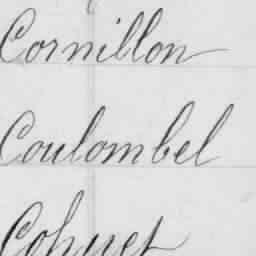 Cornillon
Coulombel
Cohuet